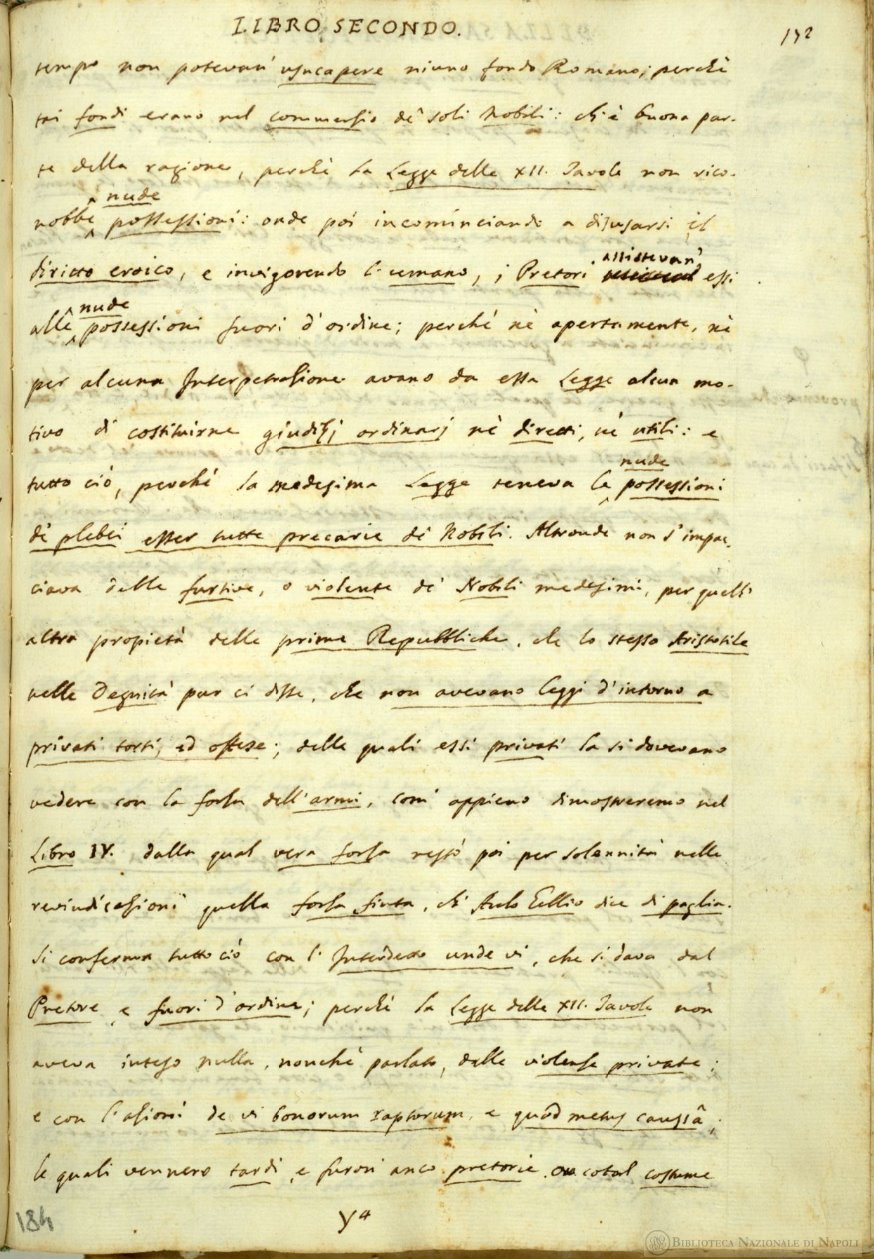 LIBRO SECONDO.
tempo non potevan' usucapere niuno fondo Romano; perchè
tai fondi erano nel commerzio de' soli Nobili: ch'è buona par-
te della ragione, perchè la Legge delle XII. Tavole non rico-
nude
nobbe possessioni: onde poi incominciando a disusarsi il
diritto eroico, e invigorendo l'umano, i Pretori assistevan' essi
nude
alle possessioni fuori d'ordine; perchè nè apertamente, nè
per alcuna Interpetrazione avano da essa Legge alcun mo-
tivo di costituirne giudizj ordinarj nè diretti, nè utili: e
nude
tutto ciò, perchè la medesima Legge teneva le possessioni
de' plebei esser tutte precarie de' Nobili. Altronde non s'impac-
ciava delle furtive, o violente de' Nobili medesimi, per quell'
altra propietà delle prime Repubbliche, che lo stesso Aristotile
nelle Degnità pur ci disse, che non avevano leggi d'intorno a
privati torti, ed offese; delle quali essi privati la si dovevano
vedere con la forza dell'armi, com' appieno dimostreremo nel
Libro IV. dalla qual vera forza restò poi per solennità nelle
revindicazioni quella forza finta, ch' Aulo Gellio dice di paglia.
Si conferma tutto ciò con l'Interdetto unde vi, che si dava dal
Pretore, e fuori d'ordine; perchè la Legge delle XII. Tavole non
aveva inteso nulla, nonchè parlato, delle violenze private;
e con l'azioni de vi bonorum raptorum, e quod metus caussâ,
le quali vennero tardi, e furon' anco pretorie. cotal costume
Y4
132
184
BIBLIOTECA NAZIONALE DI NAPOLI